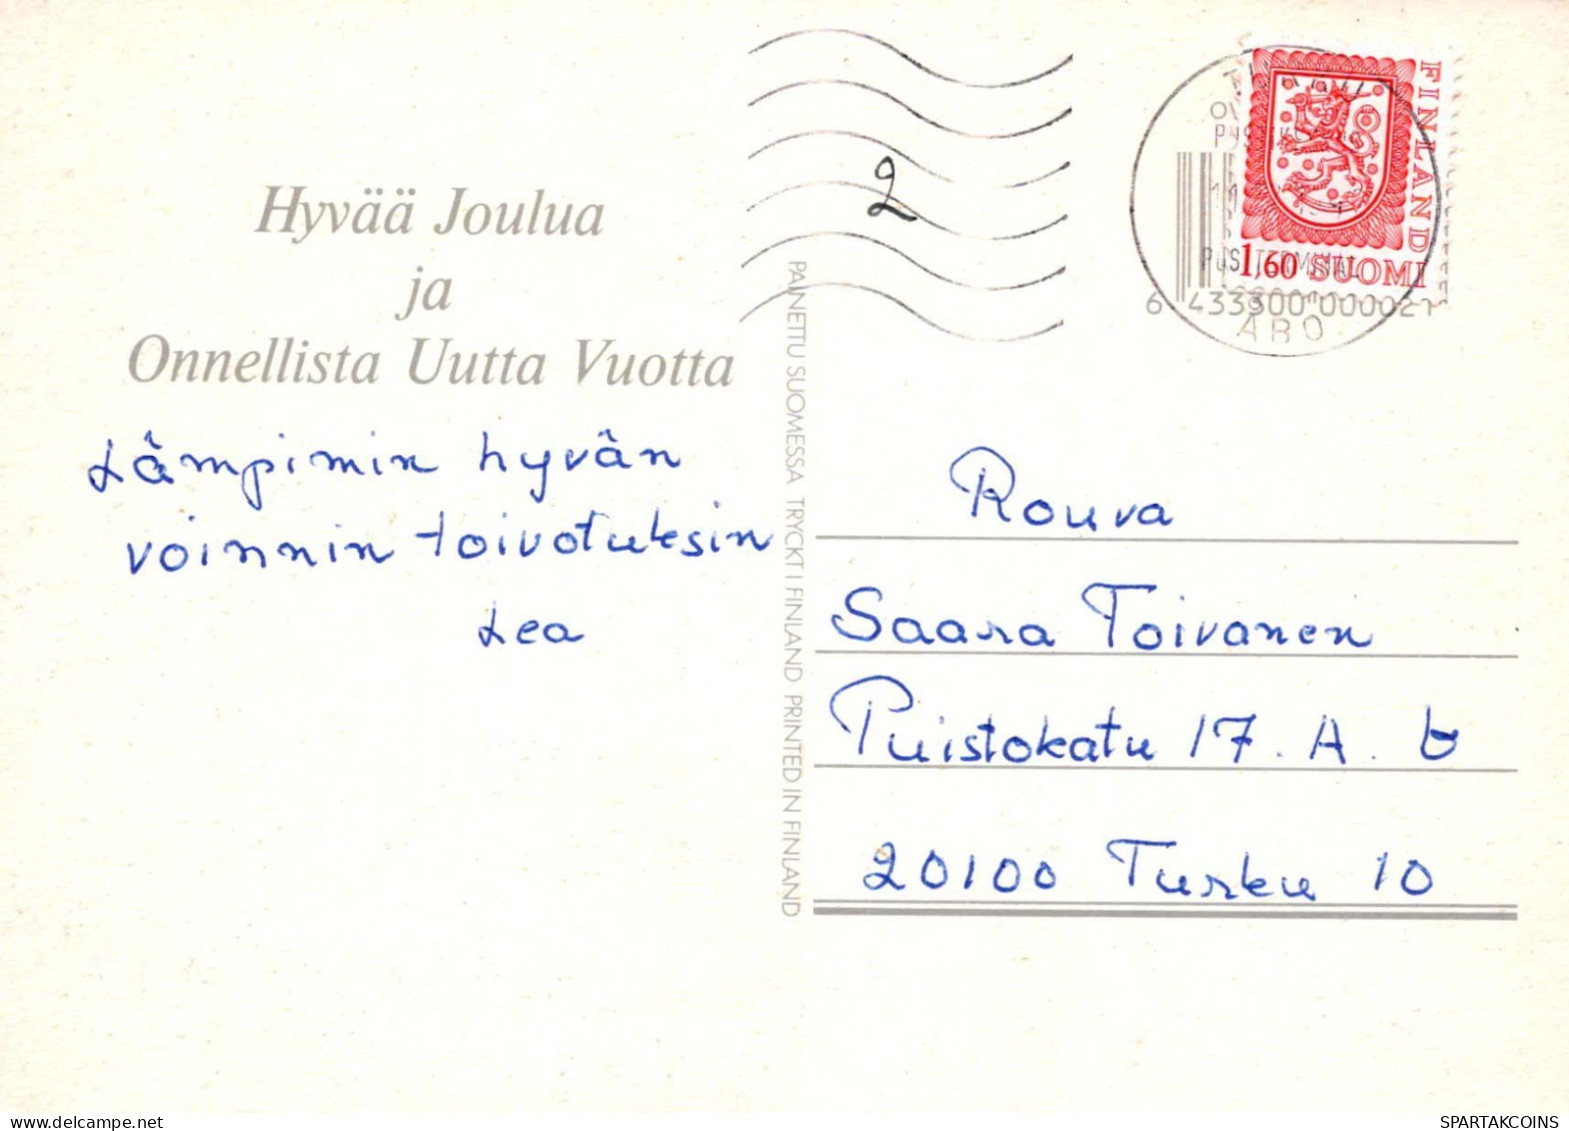 Hyvää Joulua
ja
Onnellista Uutta Vuotta
Lämpimin hyvän
voinnin toivotuksin
Lea
PAINETTU SUOMESSA TRYCKT I FINLAND PRINTED IN FINLAND
2
FINLAND
1,60 SUOMI
6 433300 000021
ÅBO
Rouva
Saara Toivanen
Puistokatu 17. A. 6
20100 Turku 10
SPARTAKCOINS